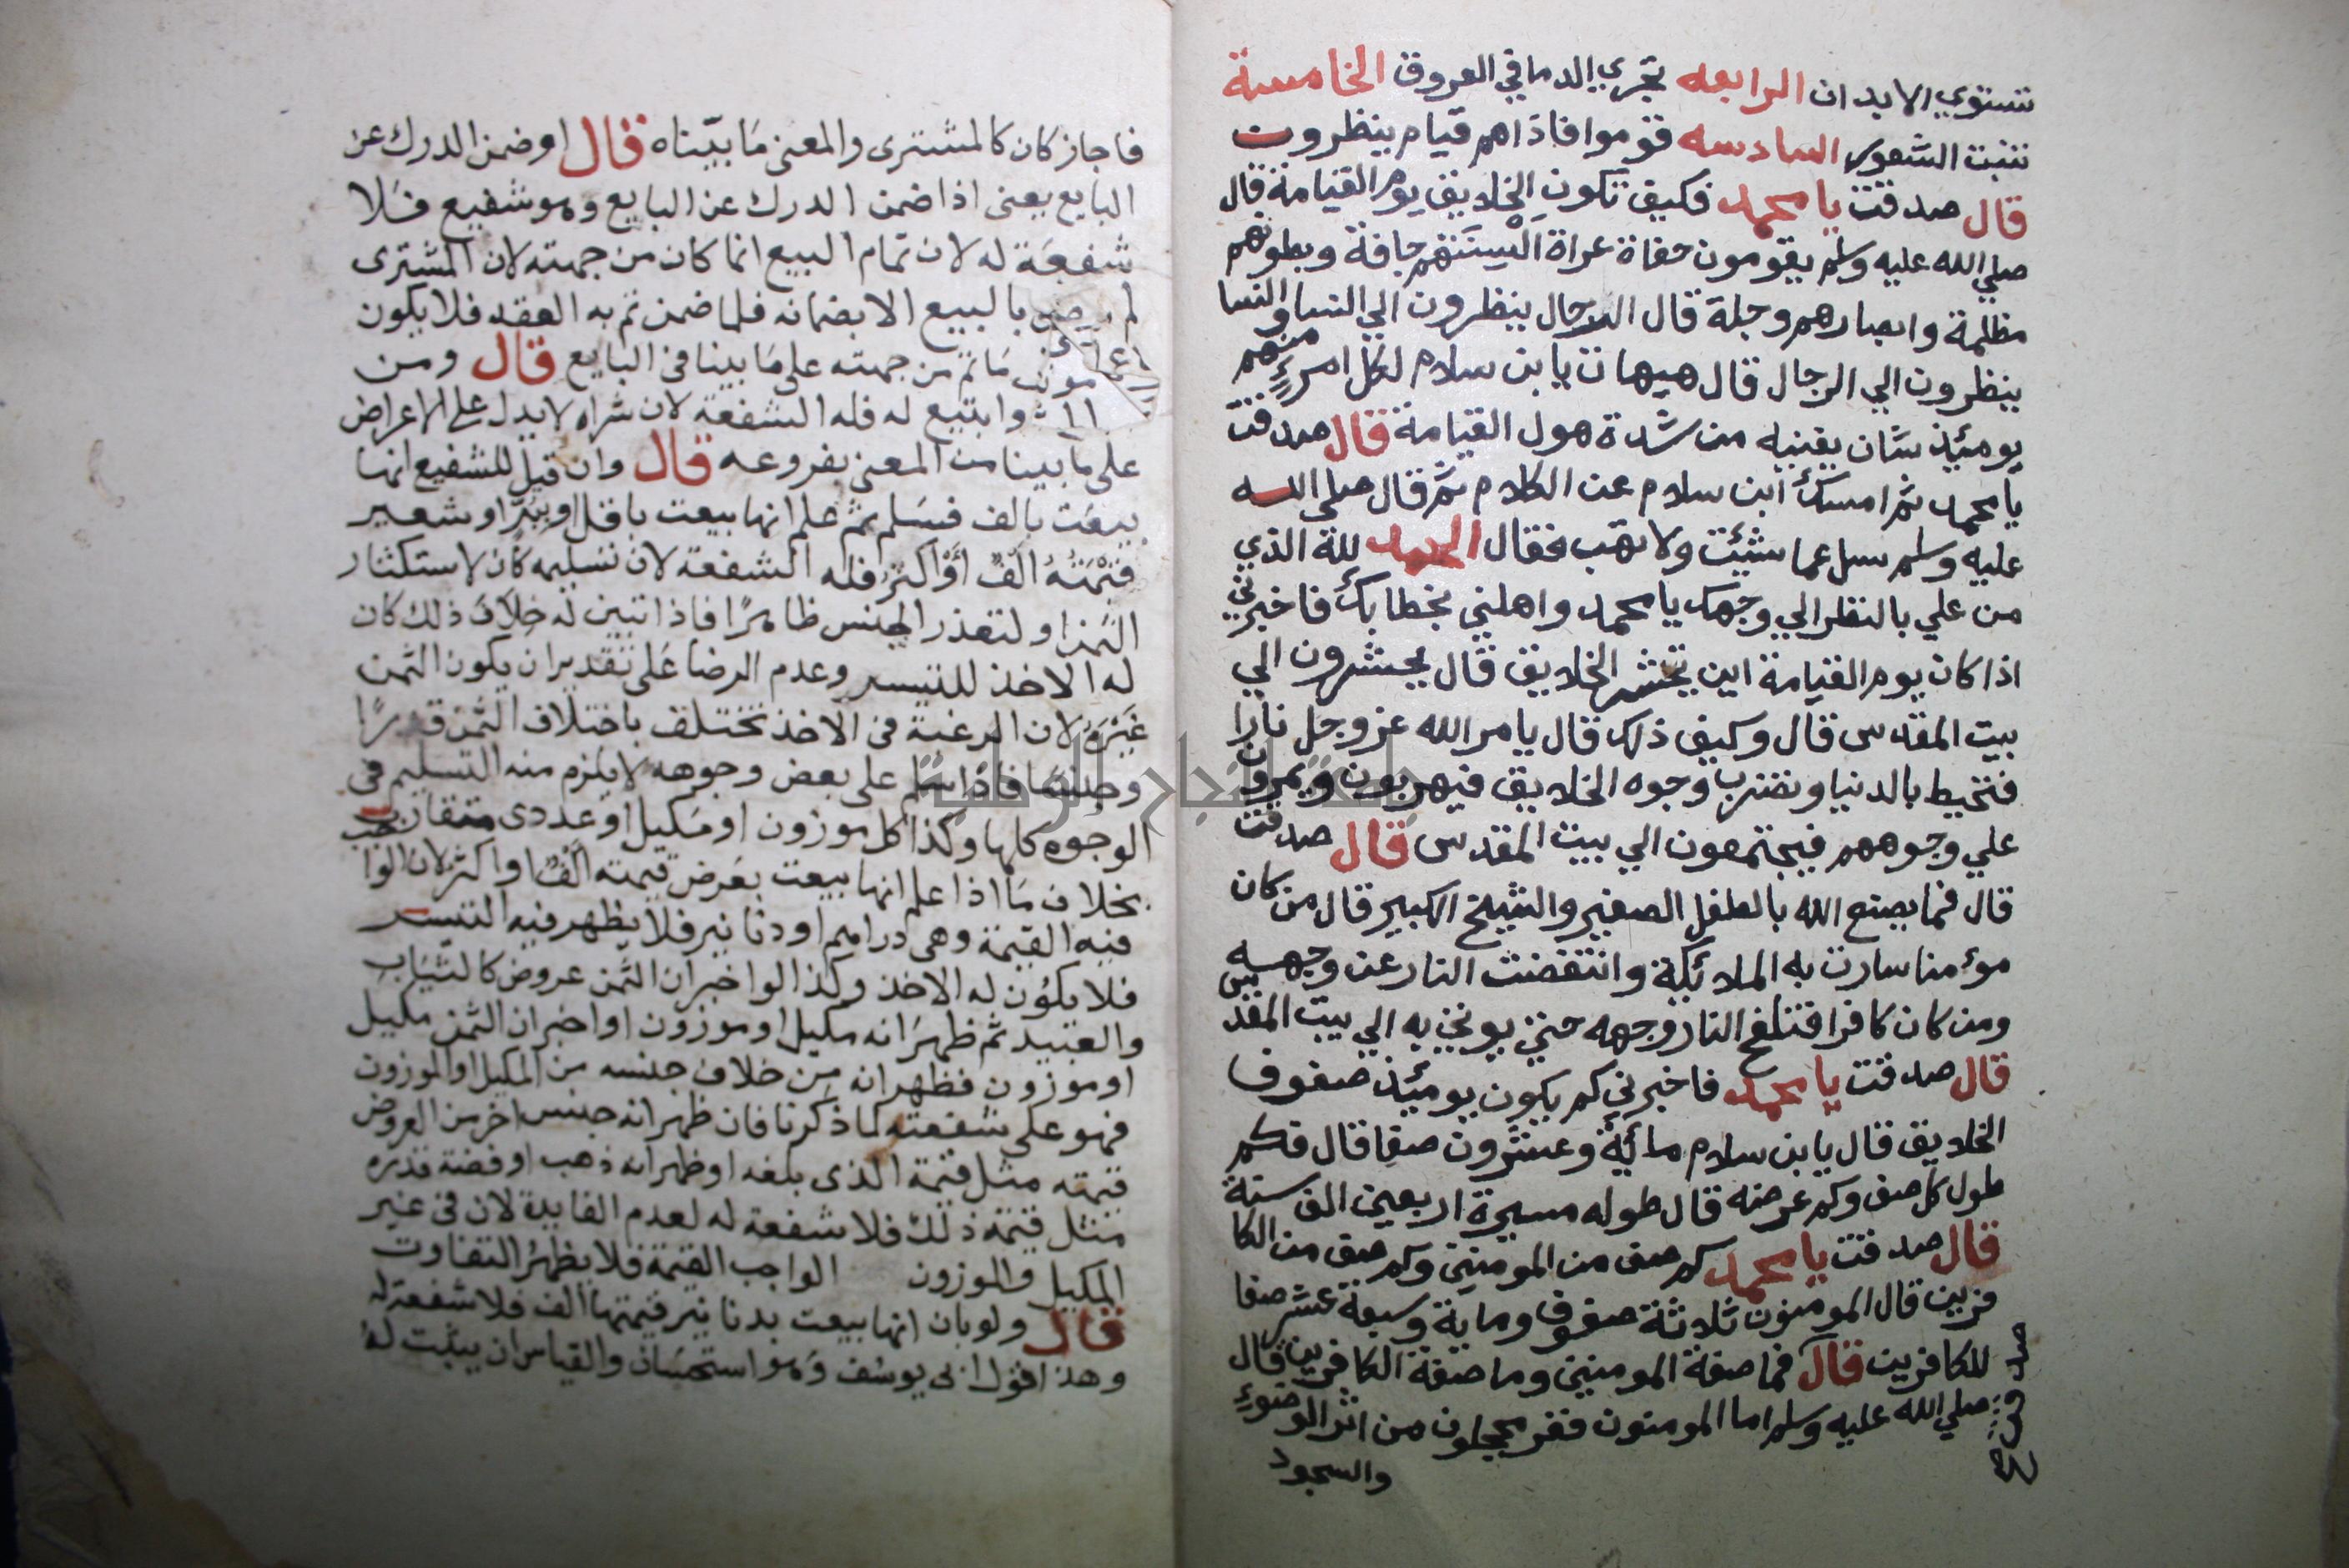 تستوي الابدان الرابعه تجري الدما في العروق الخامسة
تنبت الشعور السادسه قوموا فاذا هم قيام ينظرون
قال صدقت يا محمد فكيف تكون الخلايق يوم القيامة قال
صلي الله عليه وسلم يقومون حفاة عراة السنتهم جافة وبطونهم
مظلمة وابصارهم وجلة قال الرجال ينظرون الي النسا والنسا
ينظرون الي الرجال قال هيهات يا بن سلام لكل امرءٍ منهم
يومئذ شان يغنيه من شدة هول القيامة قال صدقت
يا محمد ثم امسك ابن سلام عن الكلام ثم قال صلي الله
عليه وسلم سل عما شئت ولا تهب فقال الحمد لله الذي
من علي بالنظر الي وجهك يا محمد واهلني بخطابك فاخبرني
اذا كان يوم القيامة اين تحشر الخلايق قال يحشرون الي
بيت المقدس قال وكيف ذلك قال يامر الله عز وجل نارا
فتحيط بالدنيا وتضرب وجوه الخلايق فيهربون ويمرون
علي وجوههم فيجتمعون الي بيت المقدس قال صدقت
قال فما يصنع الله بالطفل الصغير والشيخ الكبير قال من كان
مومنا سارت به الملائكة وانتفضت النار عن وجهه
ومن كان كافرا فتلفح النار وجهه حتي يوتي به الي بيت المقدس
قال صدقت يا محمد فاخبرني كم يكون يومئذ صفوف
الخلايق قال يا بن سلام مائة وعشرون صفا قال فكم
طول كل صف وكم عرضه قال طوله مسيرة اربعين الف سنة
قال صدقت يا محمد كم صف من المومنين وكم صف من الكا
فرين قال المومنون ثلاثة صفوف وماية وسبعة عشر صفا
للكافرين قال فما صفة المومنين وما صفة الكافرين قال
صلي الله عليه وسلم اما المومنون فغر محجلون من اثر الوضوء
والسجود
فاجاز كان كالمشترى والمعنى ما بيّناه قال او ضمن الدرك عن
البايع يعنى اذا ضمن الدرك عن البايع وهو شفيع فلا
شفعة له لان تمام البيع انما كان من جهته لان المشترى
لم يرض بالبيع الا بضمانه فلما ضمن تم به العقد فلا يكون
ما تم من جهته على ما بينا فى البايع قال ومن
وابتيع له فله الشفعة لان شراه لا يدل على الاعراض
على ما بينا من المعنى بفروعه قال وان قيل للشفيع انها
بيعت بالف فسلم ثم علم انها بيعت باقل او ببُرّ او شعير
قيمته الف او اكثر فله الشفعة لان تسليمه كان لاستكثار
الثمن او لتعذر الجنس ظاهرًا فاذا تبين له خلاف ذلك كان
له الاخذ للتيسر وعدم الرضا على تقدير ان يكون الثمن
غيره لان الرغبة فى الاخذ تختلف باختلاف الثمن قدرًا
وجنسا فاذا سلم على بعض وجوهه لا يلزم منه التسليم فى
الوجوه كلها وكذا كل موزون او مكيل او عددى متقارب
بخلاف ما اذا علم انها بيعت بعرض قيمته الف او اكثر لان الواجب
فيه القيمة وهى دراهم او دنانير فلا يظهر فيه التيسر
فلا يكون له الاخذ وكذا لو اخبر ان الثمن عروض كالثياب
والعبيد ثم ظهر انه مكيل او موزون او اخبر ان الثمن مكيل
او موزون فظهر انه من خلاف جنسه من المكيل او الموزون
فهو على شفعته لما ذكرنا فان ظهر انه جنس اخر من العروض
قيمته مثل قيمة الذى بلغه او ظهر انه ذهب او فضة قدره
مثل قيمة ذلك فلا شفعة له لعدم الفايدة لان فى غير
المكيل والموزون الواجب القيمة فلا يظهر التفاوت
قال ولو بان انها بيعت بدنانير قيمتها الف فلا شفعة له
وهذا قول ابى يوسف وهو استحسان والقياس ان يثبت له
جامعة النجاح الوطنية